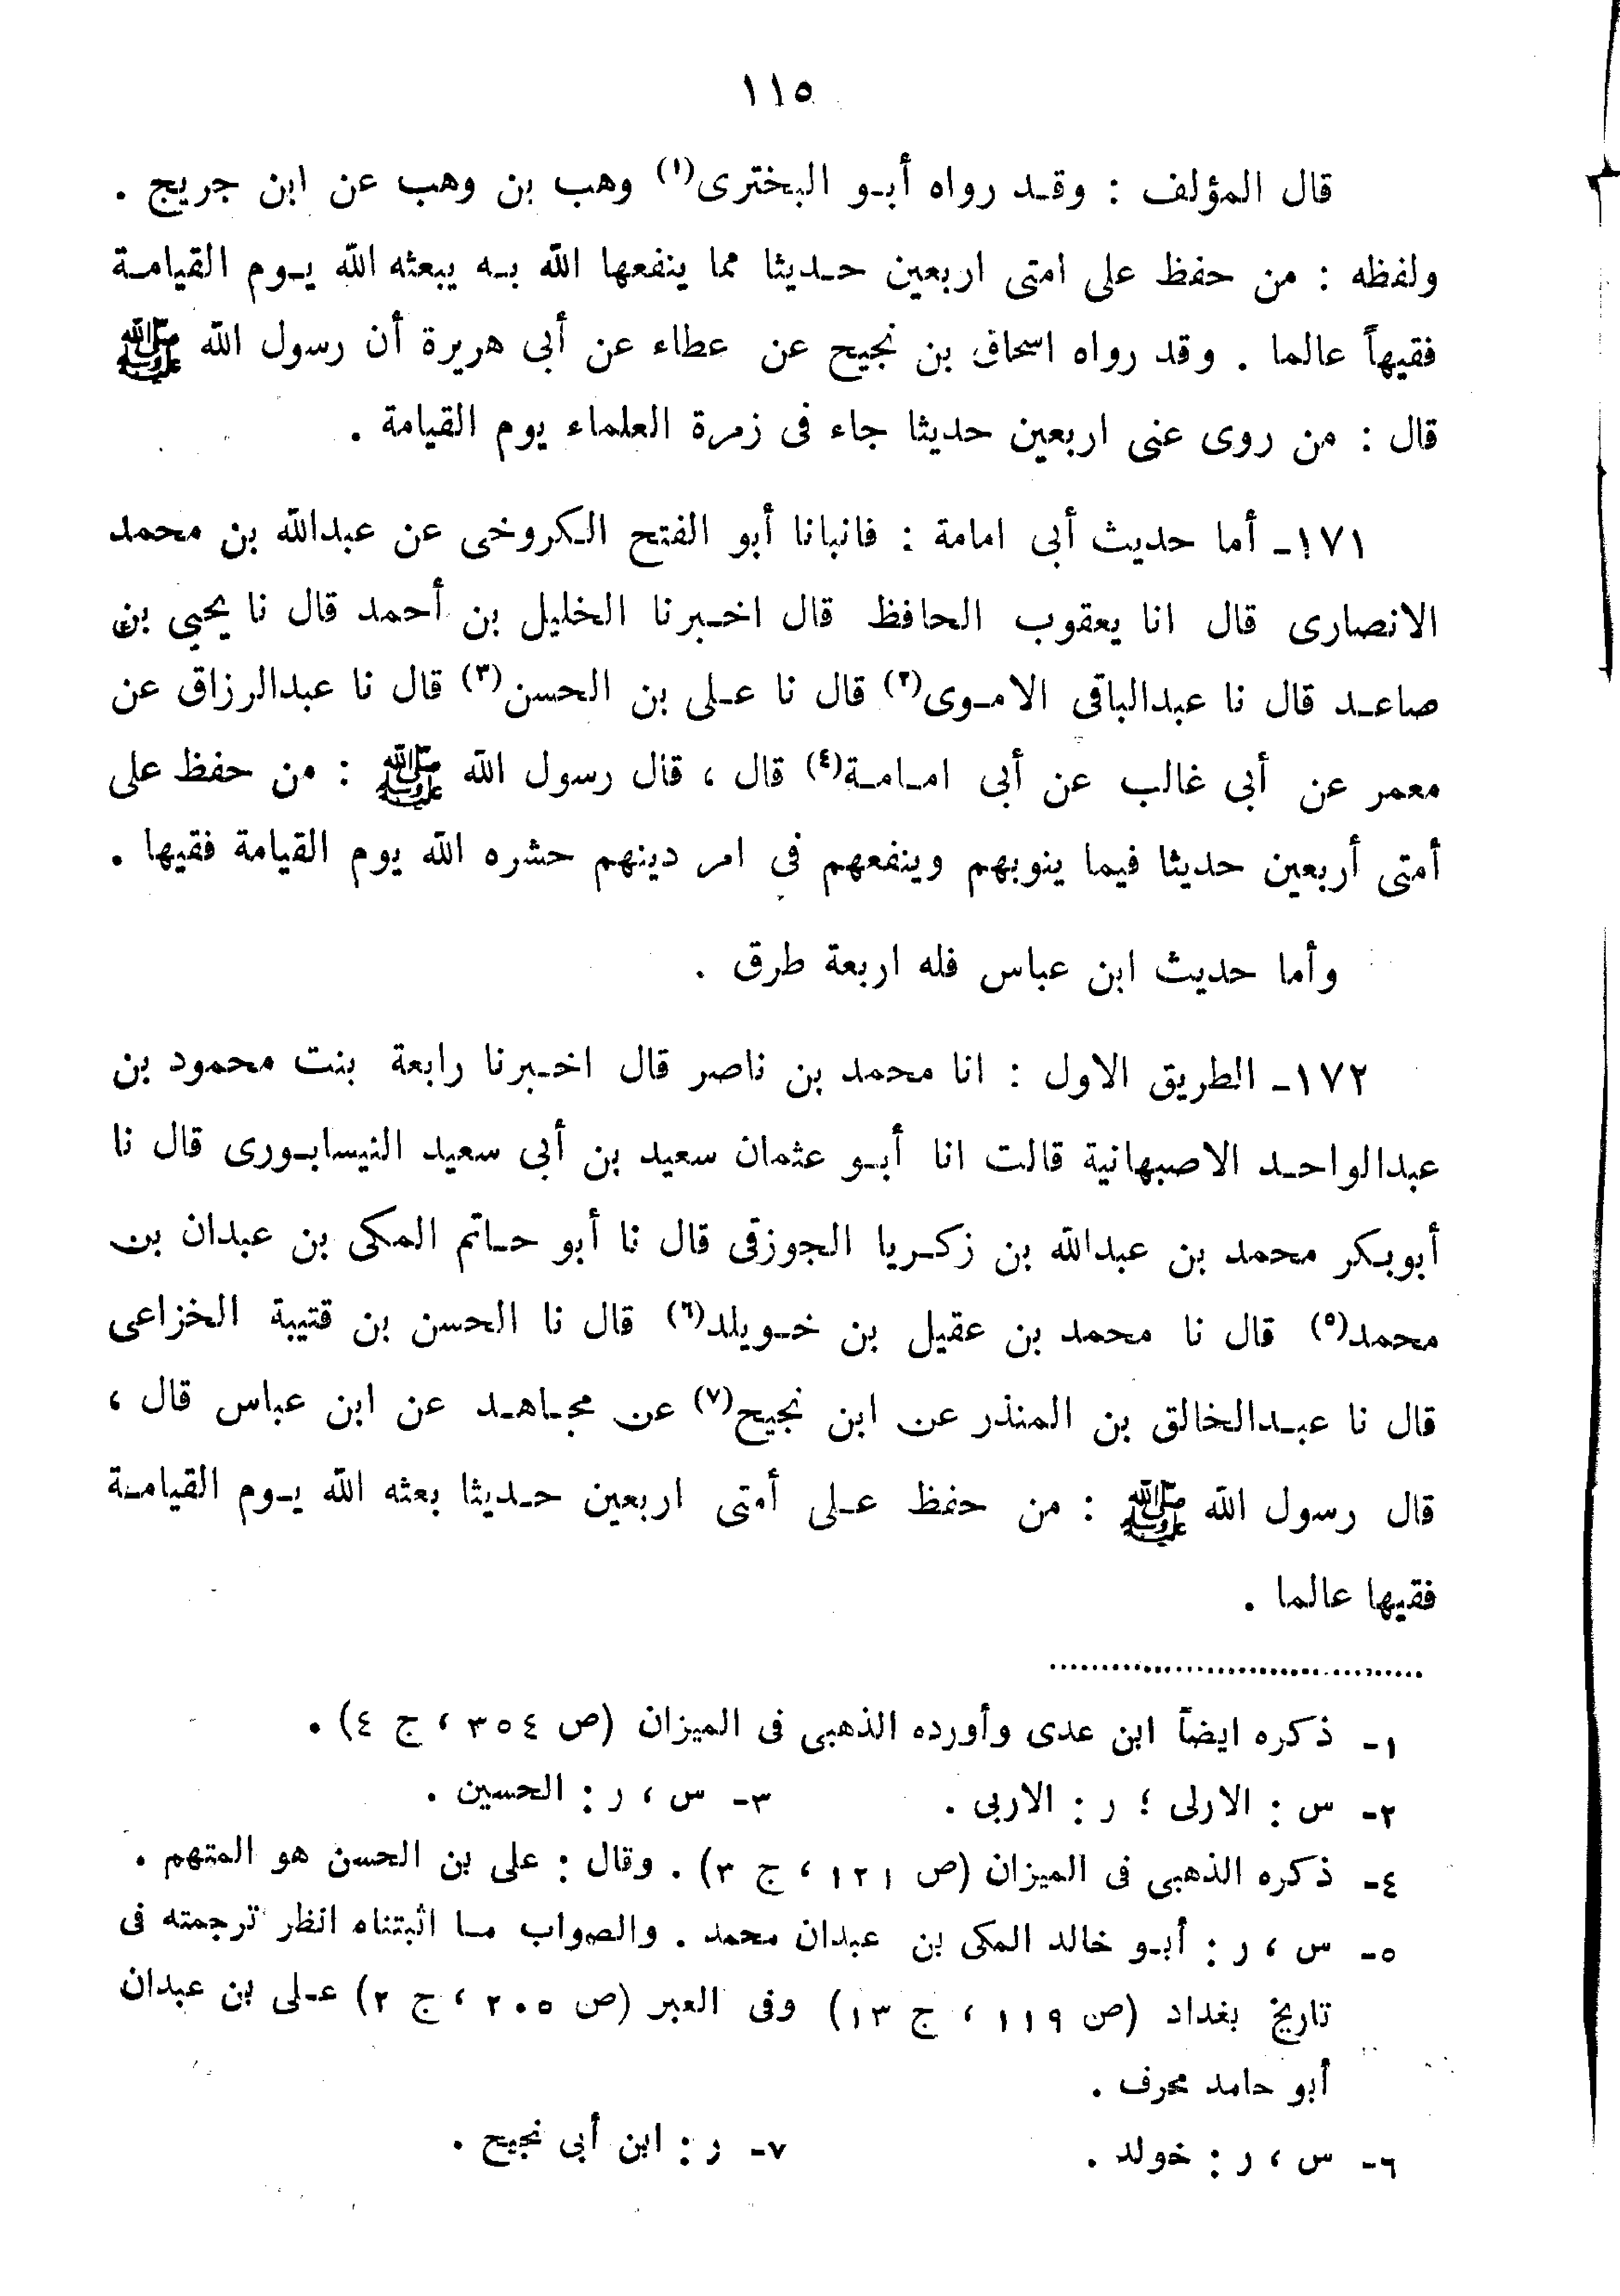 ١١٥
قال المؤلف : وقد رواه أبو البخترى(١) وهب بن وهب عن ابن جريج .
ولفظه : من حفظ على امتى اربعين حديثا مما ينفعها الله به يبعثه الله يوم القيامة
فقيهاً عالما . وقد رواه اسحاق بن نجيح عن عطاء عن أبى هريرة أن رسول الله ﷺ
قال : من روى عنى اربعين حديثا جاء فى زمرة العلماء يوم القيامة .
١٧١ـ أما حديث أبى امامة : فانبانا أبو الفتح الكروخى عن عبدالله بن محمد
الانصارى قال انا يعقوب الحافظ قال اخبرنا الخليل بن أحمد قال نا يحيى بن
صاعد قال نا عبدالباقى الاموى(٢) قال نا على بن الحسن(٣) قال نا عبدالرزاق عن
معمر عن أبى غالب عن أبى امامة(٤) قال ، قال رسول الله ﷺ : من حفظ على
أمتى أربعين حديثا فيما ينوبهم وينفعهم فى امر دينهم حشره الله يوم القيامة فقيها .
وأما حديث ابن عباس فله اربعة طرق .
١٧٢ـ الطريق الاول : انا محمد بن ناصر قال اخبرنا رابعة بنت محمود بن
عبدالواحد الاصبهانية قالت انا أبو عثمان سعيد بن أبى سعيد النيسابورى قال نا
أبوبكر محمد بن عبدالله بن زكريا الجوزقى قال نا أبو حاتم المكى بن عبدان بن
محمد(٥) قال نا محمد بن عقيل بن خويلد(٦) قال نا الحسن بن قتيبة الخزاعى
قال نا عبدالخالق بن المنذر عن ابن نجيح(٧) عن مجاهد عن ابن عباس قال ،
قال رسول الله ﷺ : من حفظ على أمتى اربعين حديثا بعثه الله يوم القيامة
فقيها عالما .
١ـ ذكره ايضاً ابن عدى وأورده الذهبى فى الميزان (ص ٣٥٤ ، ج ٤) .
٢ـ س : الارلى ؛ ر : الاربى . ٣ـ س ، ر : الحسين .
٤ـ ذكره الذهبى فى الميزان (ص ١٢١ ، ج ٣) . وقال : على بن الحسن هو المتهم .
٥ـ س ، ر : أبو خالد المكى بن عبدان محمد . والصواب ما اثبتناه انظر ترجمته فى
تاريخ بغداد (ص ١١٩ ، ج ١٣) وفى العبر (ص ٢٠٥ ، ج ٢) على بن عبدان
أبو حامد محرف .
٦ـ س ، ر : خولد . ٧ـ ر : ابن أبى نجيح .